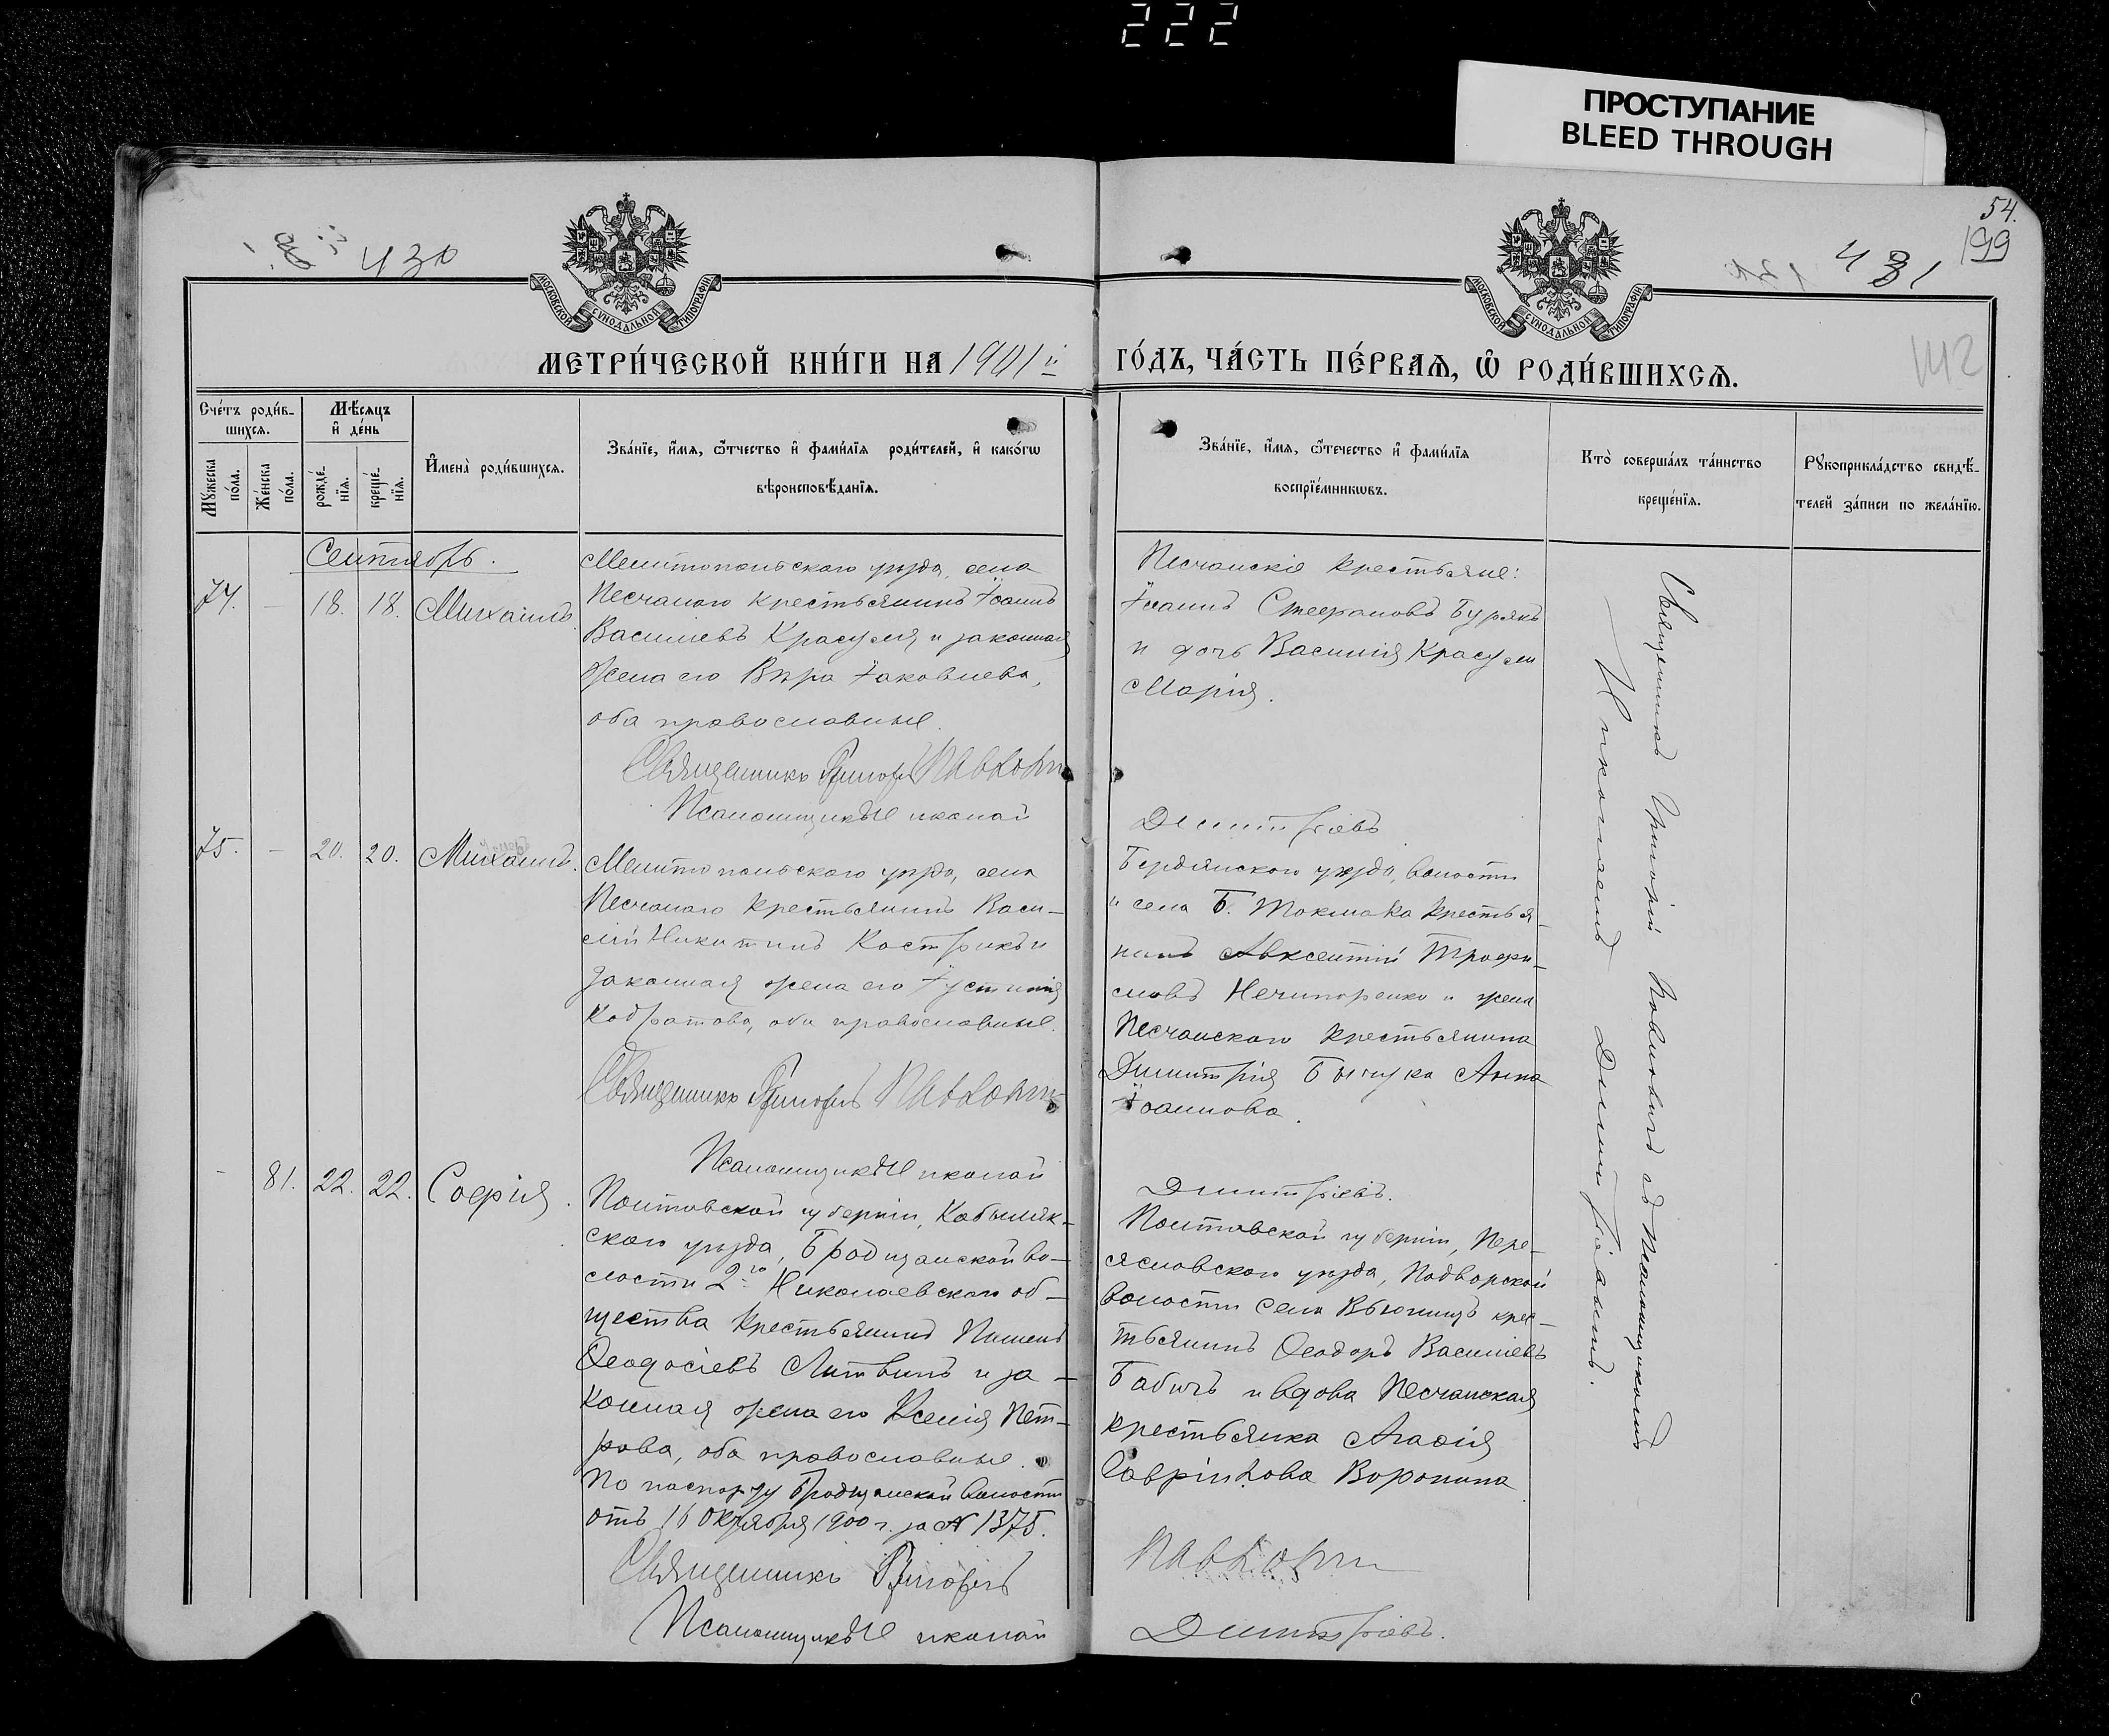 222
ПРОСТУПАНИЕ
BLEED THROUGH
54.
199
430
431
142
МОСКОВСКОЙ СѴНОДАЛЬНОЙ ТИПОГРАФІИ
МОСКОВСКОЙ СѴНОДАЛЬНОЙ ТИПОГРАФІИ
МЕТРИ́ЧЕСКОЙ КНИ́ГИ НА 1901й ГО́ДЪ, ЧА́СТЬ ПЕ́РВАѦ, Ѡ҆ РОДИ́ВШИХСѦ.
Сче́тъ роди́в-
шихсѧ.
Мѣ́сѧцъ
и҆ де́нь
Мꙋ́жеска
по́ла.
Же́нска
по́ла.
рожде́-
нїѧ.
креще́-
нїѧ.
И҆мена̀ роди́вшихсѧ.
Зва́нїе, и҆́мѧ, ѻ҆́тчество и҆ фами́лїѧ роди́телей, и҆ како́гѡ
вѣроисповѣ́данїѧ.
Зва́нїе, и҆́мѧ, ѻ҆́течество и҆ фами́лїѧ
воспрїе́мникѡвъ.
Кто̀ соверша́лъ та́инство
креще́нїѧ.
Рꙋкоприкла́дство свидѣ́-
телей за́писи по жела́нїю.
Сентябрь.
74. - 18. 18. Михаилъ.
Мелитопольскаго уѣзда, села
Песчанаго крестьянинъ Іоаннъ
Василіевъ Красуля и законная
жена его Вѣра Іаковлева,
оба православные.
Священникъ Григорій Павловичъ
Псаломщикъ Николай Димитріевъ
Песчанскіе крестьяне:
Іоаннъ Стефановъ Бурякъ
и дочь Василія Красули
Марія.
75. - 20. 20. Михаилъ.
Мелитопольскаго уѣзда, села
Песчанаго крестьянинъ Васи-
лій Никитинъ Кострикъ и
законная жена его Іустинія
Кодратова, оба православные.
Священникъ Григорій Павловичъ
Псаломщикъ Николай Димитріевъ.
Бердянскаго уѣзда, волости
и села Б. Токмака крестья-
нинъ Авксентій Трофи-
мовъ Нечипоренко и жена
Песчанскаго крестьянина
Димитрія Бычука Анна
Іоаннова.
- 81. 22. 22. Софія.
Полтавской губерніи, Кобыляк-
скаго уѣзда, Бродщанской во-
лости 2го Николаевскаго об-
щества крестьянинъ Пименъ
Ѳеодосіевъ Литвинъ и за-
конная жена его Ксенія Пет-
рова, оба православные.
По паспорту Бродщанской волости
отъ 16 октября 1900 г. за № 1375.
Священникъ Григорій Павловичъ
Псаломщикъ Николай Димитріевъ.
Полтавской губерніи, Пере-
яславскаго уѣзда, Подворской
волости села Вьюницъ крес-
тьянинъ Ѳеодоръ Василіевъ
Бабичъ и вдова Песчанская
крестьянка Агафія
Гавріилова Воронина
Священникъ Григорій Павловичъ съ Псаломщикомъ
Николаемъ Димитріевымъ.